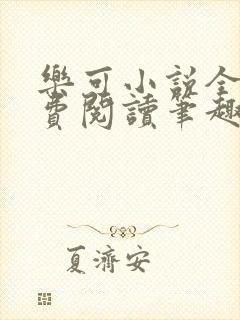 樂可小說全
費閱讀筆趣
夏濟安